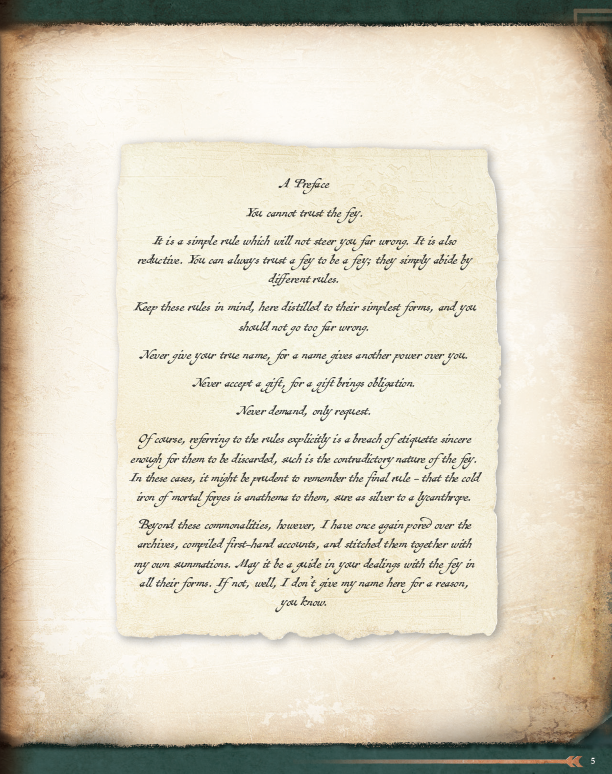 A Preface
You cannot trust the fey.
It is a simple rule which will not steer you far wrong. It is also
reductive. You can always trust a fey to be a fey; they simply abide by
different rules.
Keep these rules in mind, here distilled to their simplest forms, and you
should not go too far wrong.
Never give your true name, for a name gives another power over you.
Never accept a gift, for a gift brings obligation.
Never demand, only request.
Of course, referring to the rules explicitly is a breach of etiquette sincere
enough for them to be discarded, such is the contradictory nature of the fey.
In these cases, it might be prudent to remember the final rule – that the cold
iron of mortal forges is anathema to them, sure as silver to a lycanthrope.
Beyond these commonalities, however, I have once again pored over the
archives, compiled first-hand accounts, and stitched them together with
my own summations. May it be a guide in your dealings with the fey in
all their forms. If not, well, I don't give my name here for a reason,
you know.
5